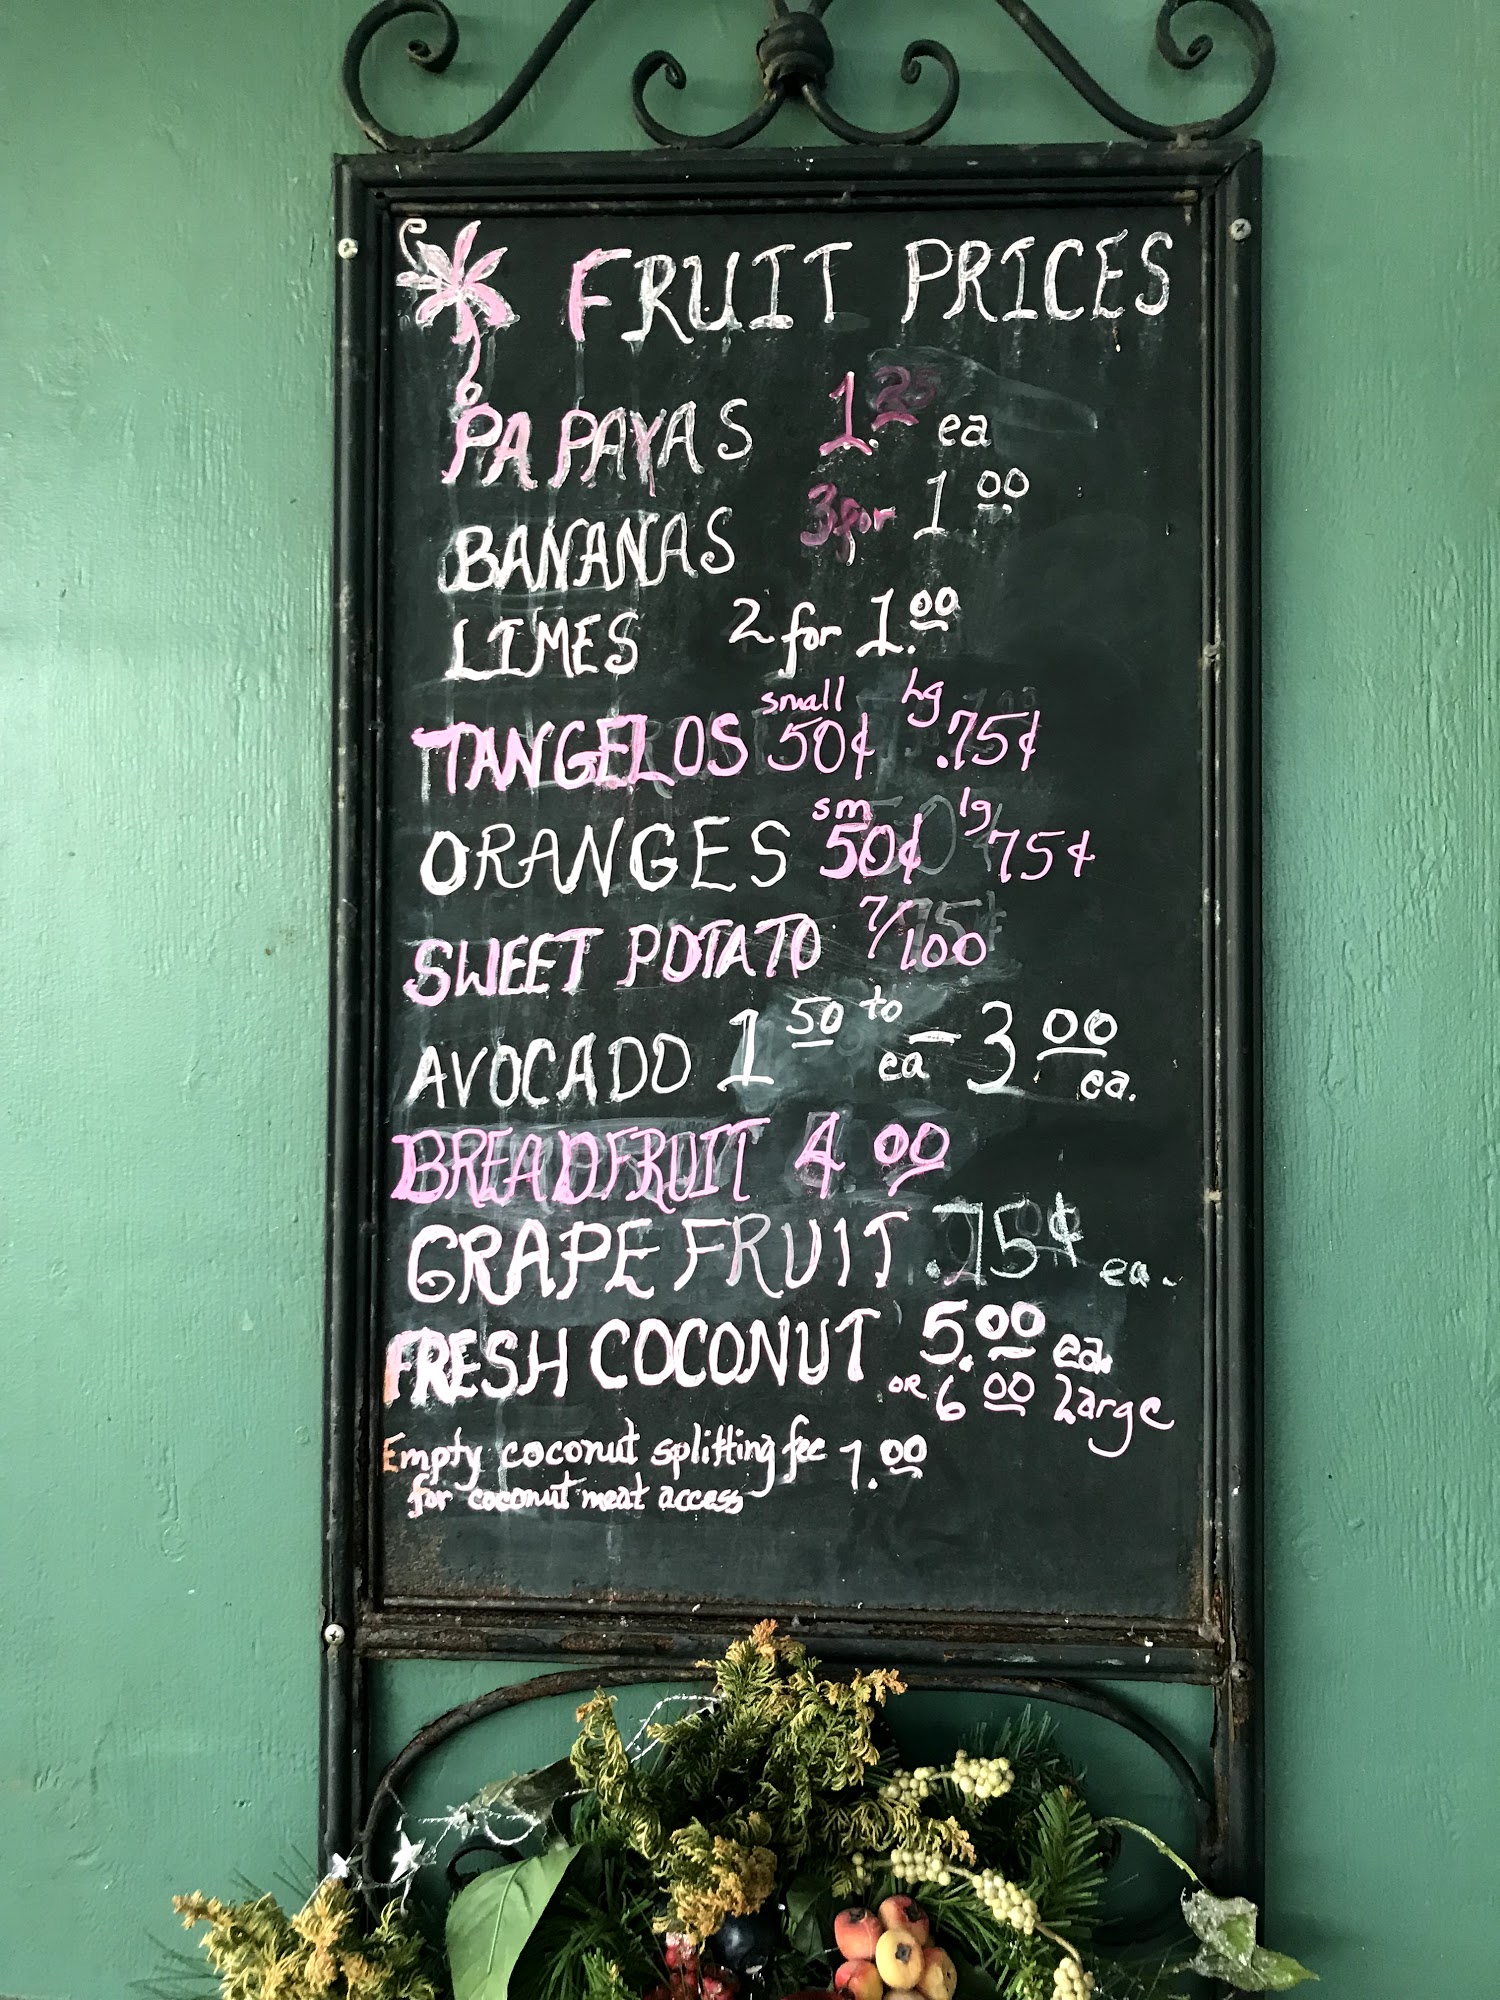 FRUIT PRICES
PAPAYAS 1.25 ea
BANANAS 3 for 1.00
LIMES 2 for 1.00
TANGELOS small 50¢ Lg .75¢
ORANGES sm 50¢ lg 75¢
SWEET POTATO 7/100
AVOCADO 1 50 ea to — 3 00 ea.
BREADFRUIT 4 00
GRAPEFRUIT .75¢ ea.
FRESH COCONUT 5.00 ea.
OR 6 00 Large
Empty coconut splitting fee 1.00
for coconut meat access